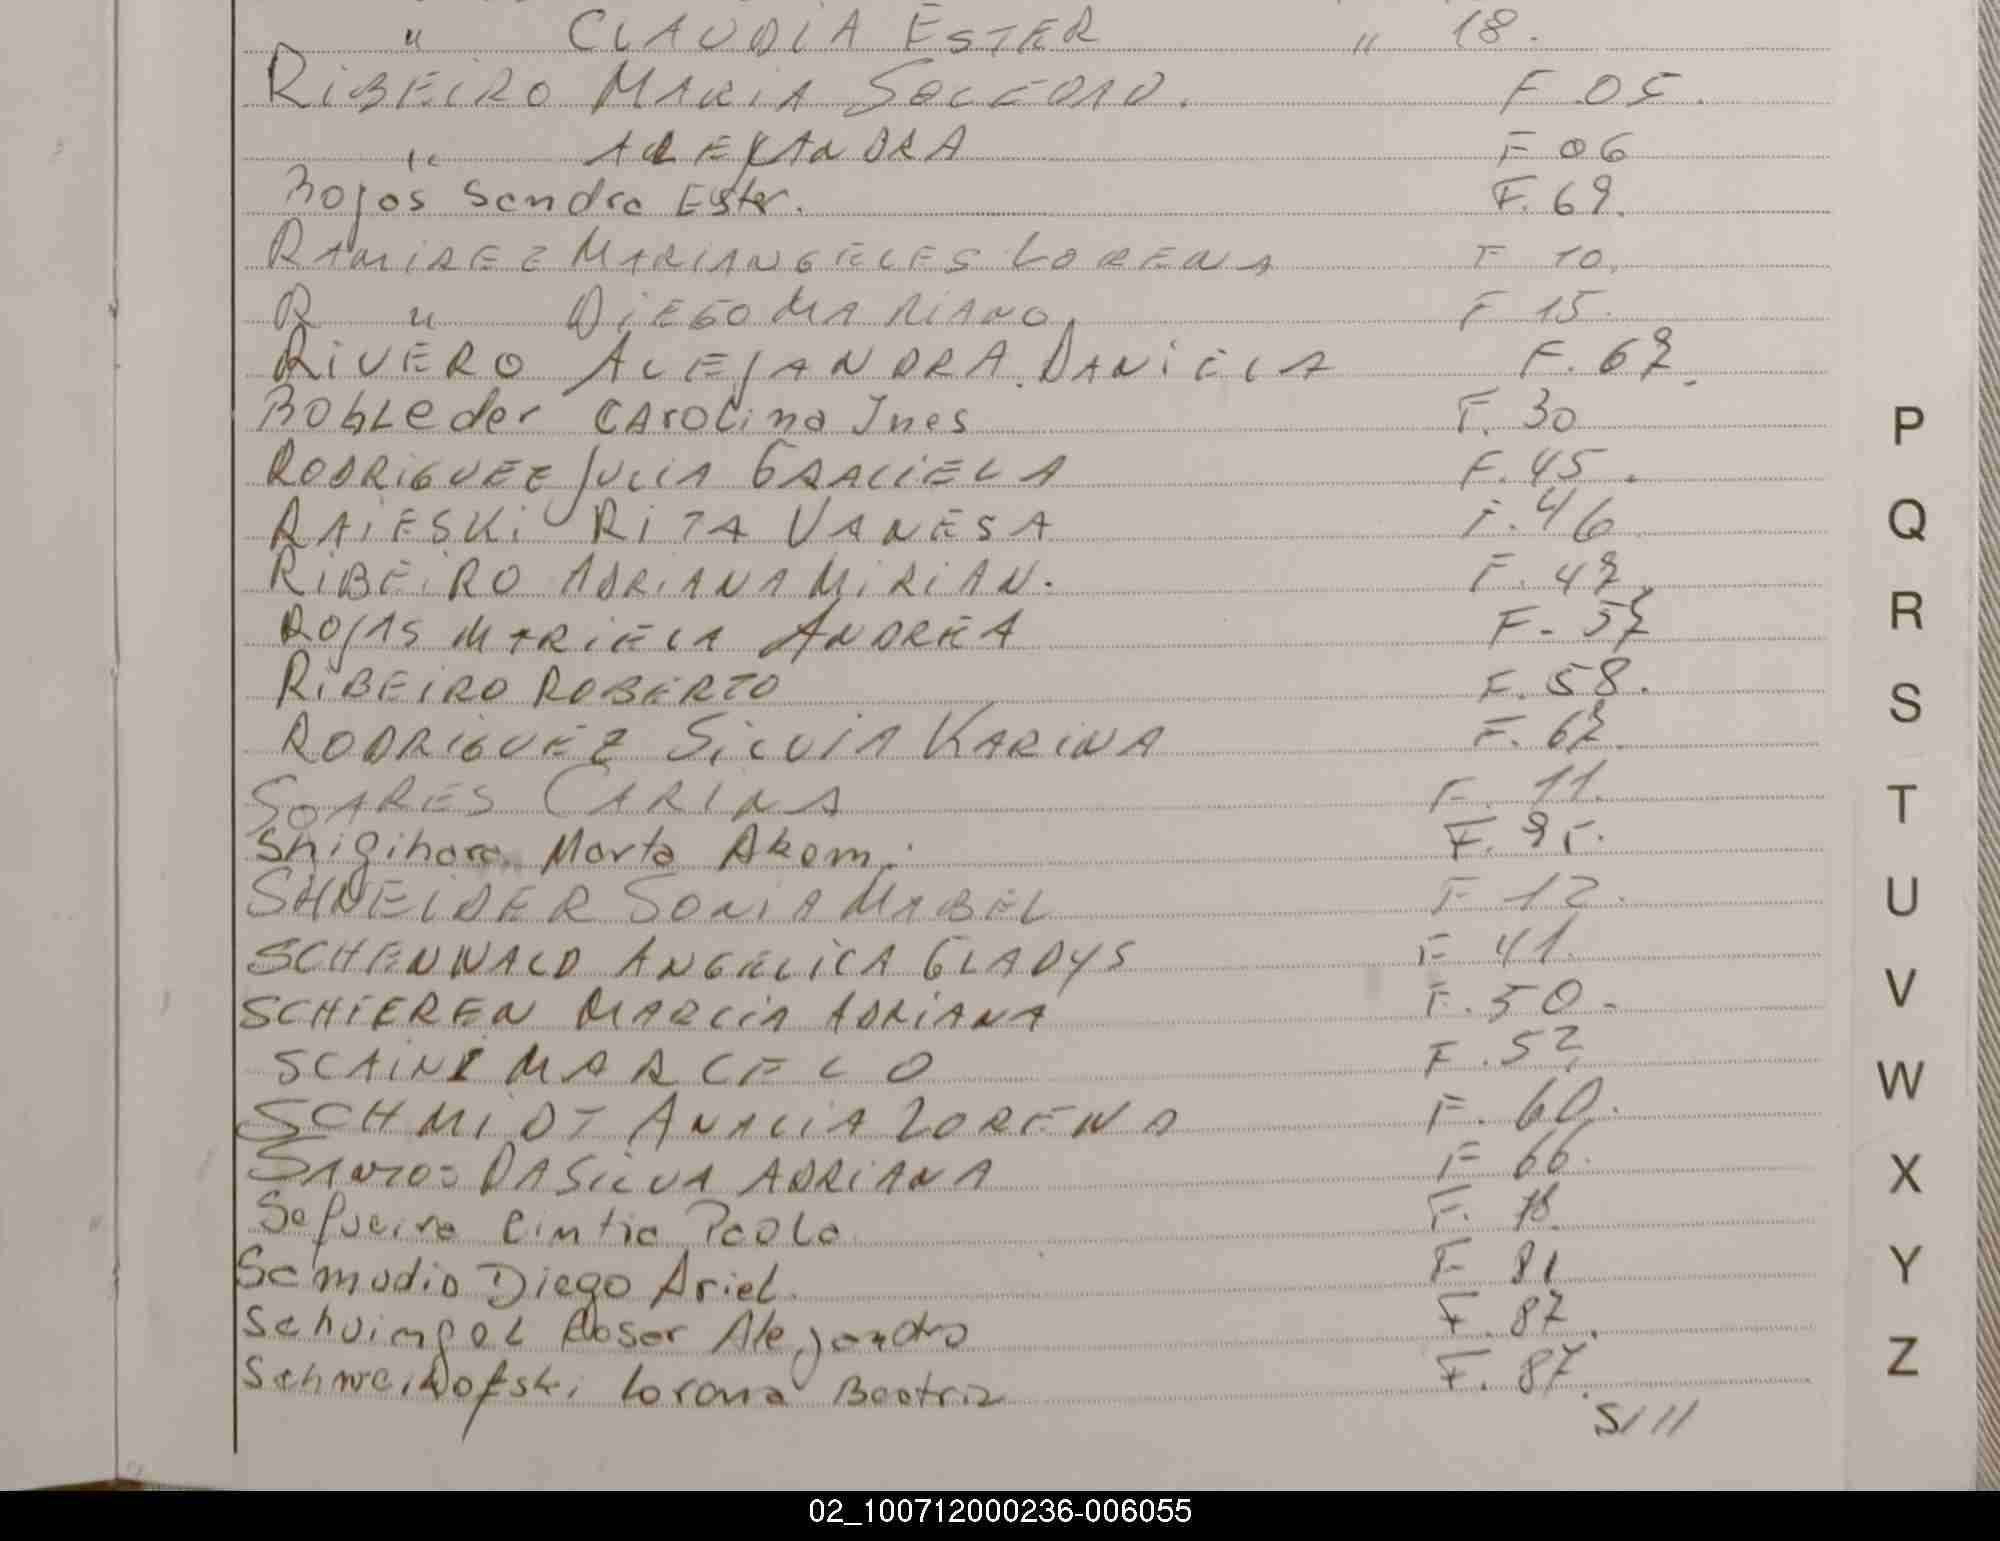 " CLAUDIA ESTER " 18.
RIBEIRO MARIA SOLEDAD. F. 05.
" ALEXANDRA F 06
Rojas Sandra Ester. F. 69.
RAMIREZ MARIANGELES LORENA F 10.
R " DIEGO MARIANO. F 15.
RIVERO ALEJANDRA DANIELA F. 67.
Rohleder CAROLina Ines F. 30
RODRIGUEZ JULIA GRACIELA F. 45.
RAIESKI RITA VANESA F. 46
RIBEIRO ADRIANA MIRIAN. F. 47.
ROJAS MARIELA ANDREA F. 57
RIBEIRO ROBERTO F. 58.
RODRIGUEZ SILVIA KARINA F. 67.
SOARES CARINA F. 11.
Shigihara Marta Akemi. F. 95.
SHNEIDER SONIA MABEL F 12.
SCHENWALD ANGELICA GLADYS F 41.
SCHIEREN MARCIA ADRIANA F. 50.
SCAINI MARCELO F. 52.
SCHMIDT ANALIA LORENA F. 60.
SANTOS DA SILVA ADRIANA F 66.
Sequeira Cintia Paola. F.
Samudio Diego Ariel. F 81
Schvimgel Alejandro F. 87.
Lorena Beatriz F. 87.
S///
P
Q
R
S
T
U
V
W
X
Y
Z
02_100712000236-006055